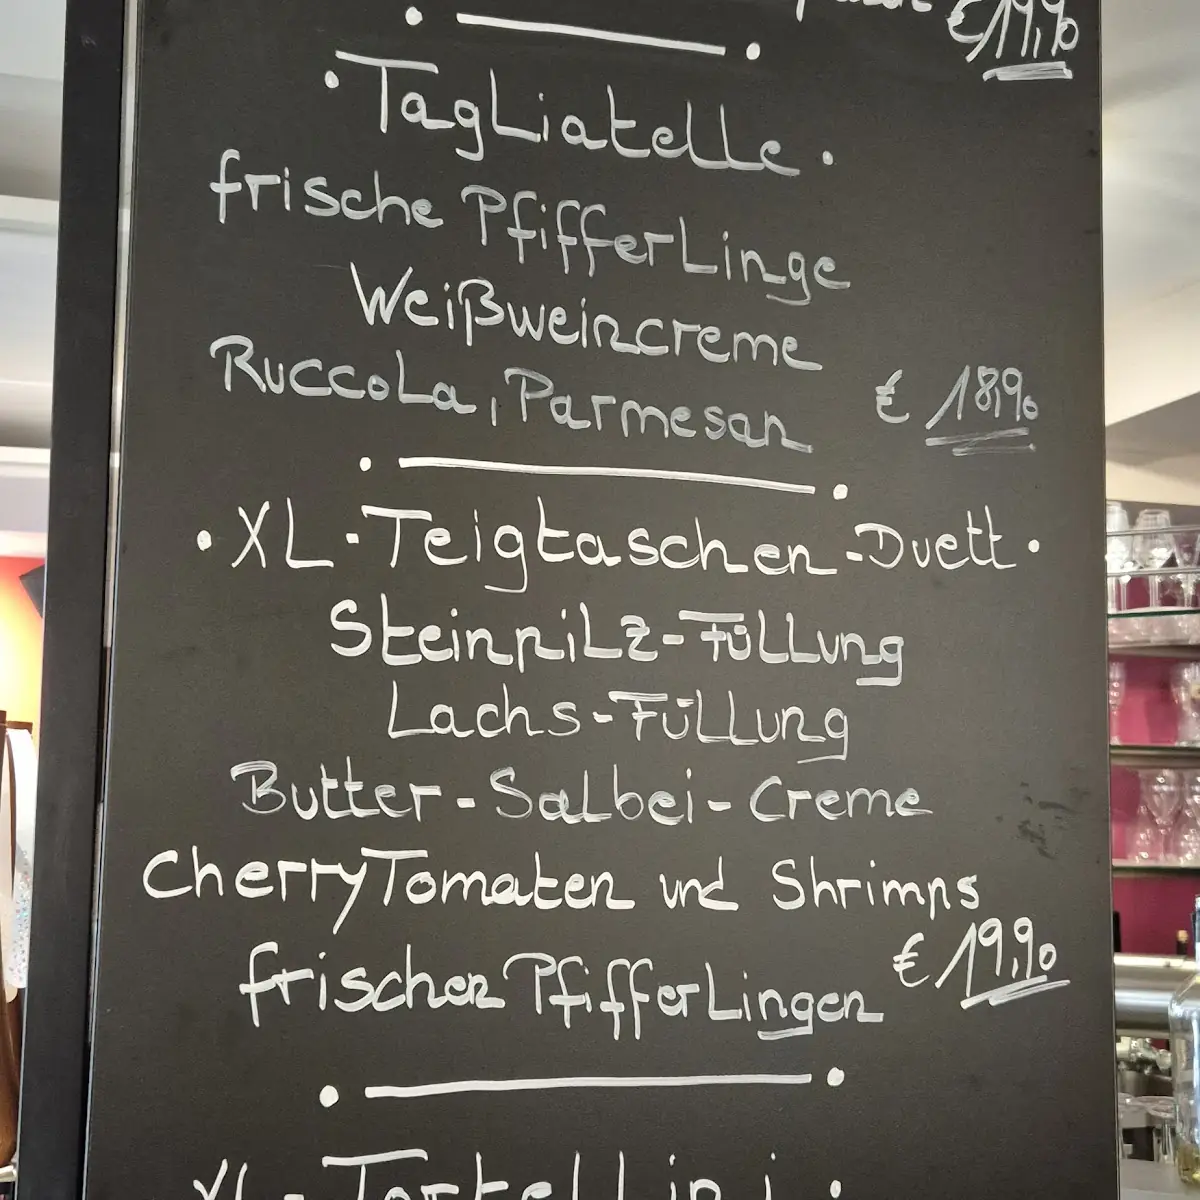 € 19,90
• Tagliatelle •
frische Pfifferlinge
Weißweincreme
Ruccola, Parmesan € 18,90
• XL-Teigtaschen-Duett •
Steinpilz-Füllung
Lachs-Füllung
Butter-Salbei-Creme
Cherry Tomaten und Shrimps
frischen Pfifferlingen € 19,90
XL-Tortellini •